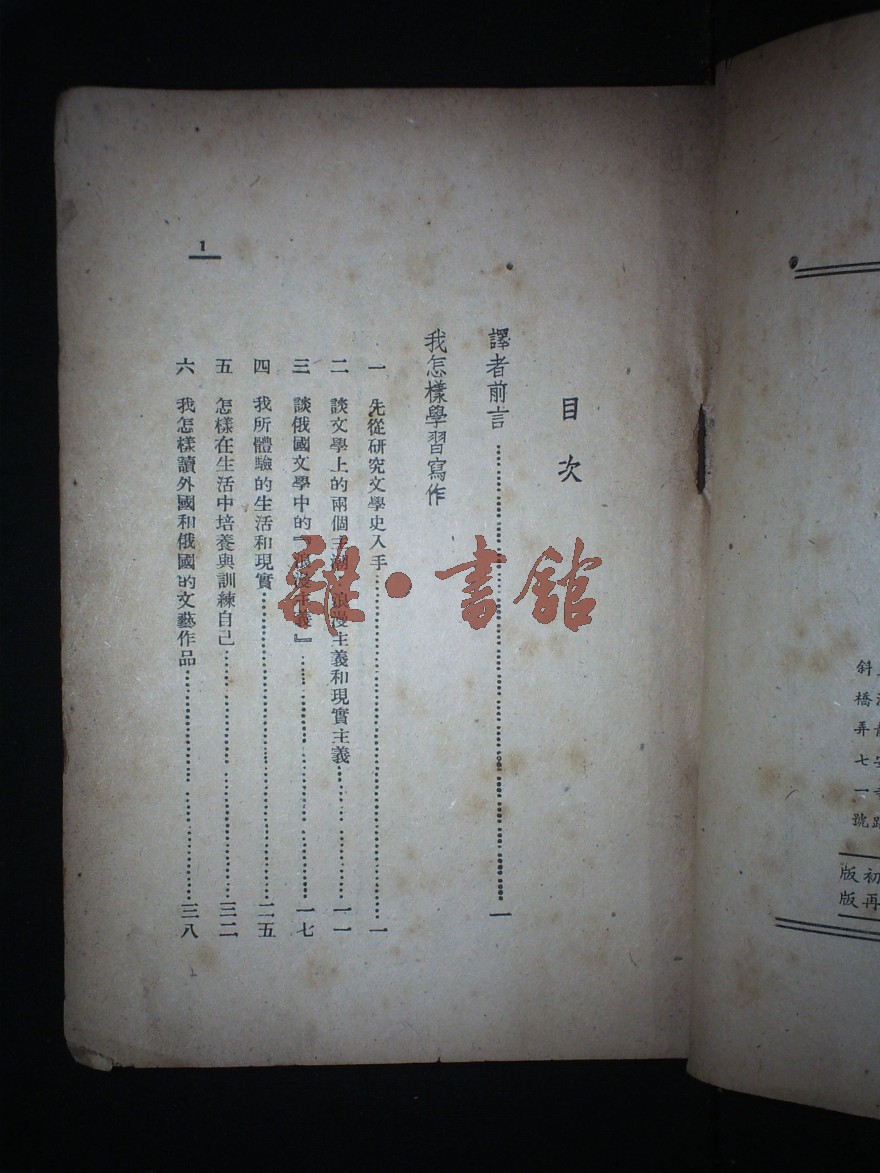 斜橋弄七一號
初版
再版
目次
譯者前言……一
我怎樣學習寫作
一 先從研究文學史入手……一
二 談文學上的兩個主潮·浪漫主義和現實主義……一一
三 談俄國文學中的『浪漫主義』……一七
四 我所體驗的生活和現實……二五
五 怎樣在生活中培養與訓練自己……三二
六 我怎樣讀外國和俄國的文藝作品……三八
1
雜·書館